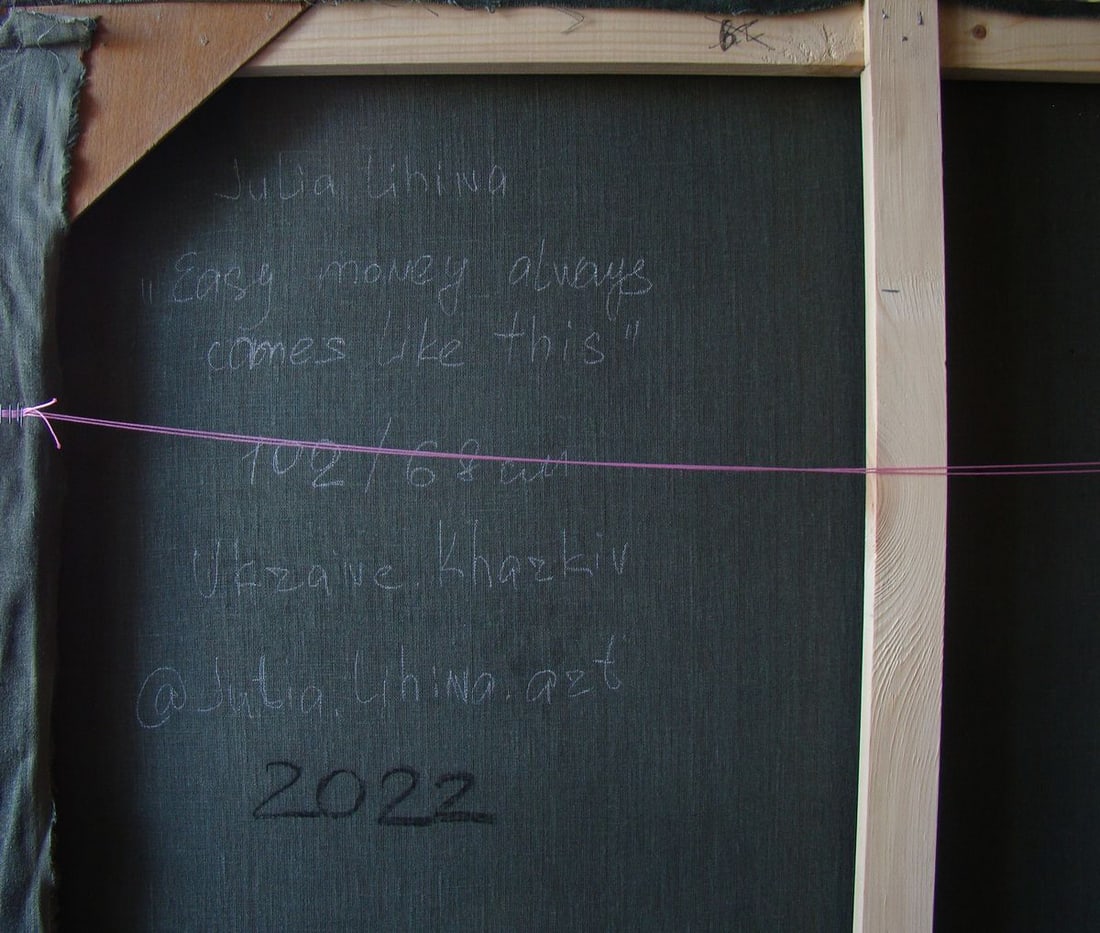 Julia Lihina
"Easy money always
comes like this"
102/68 cm
Ukraine. Kharkiv
@Julia.Lihina.art
2022